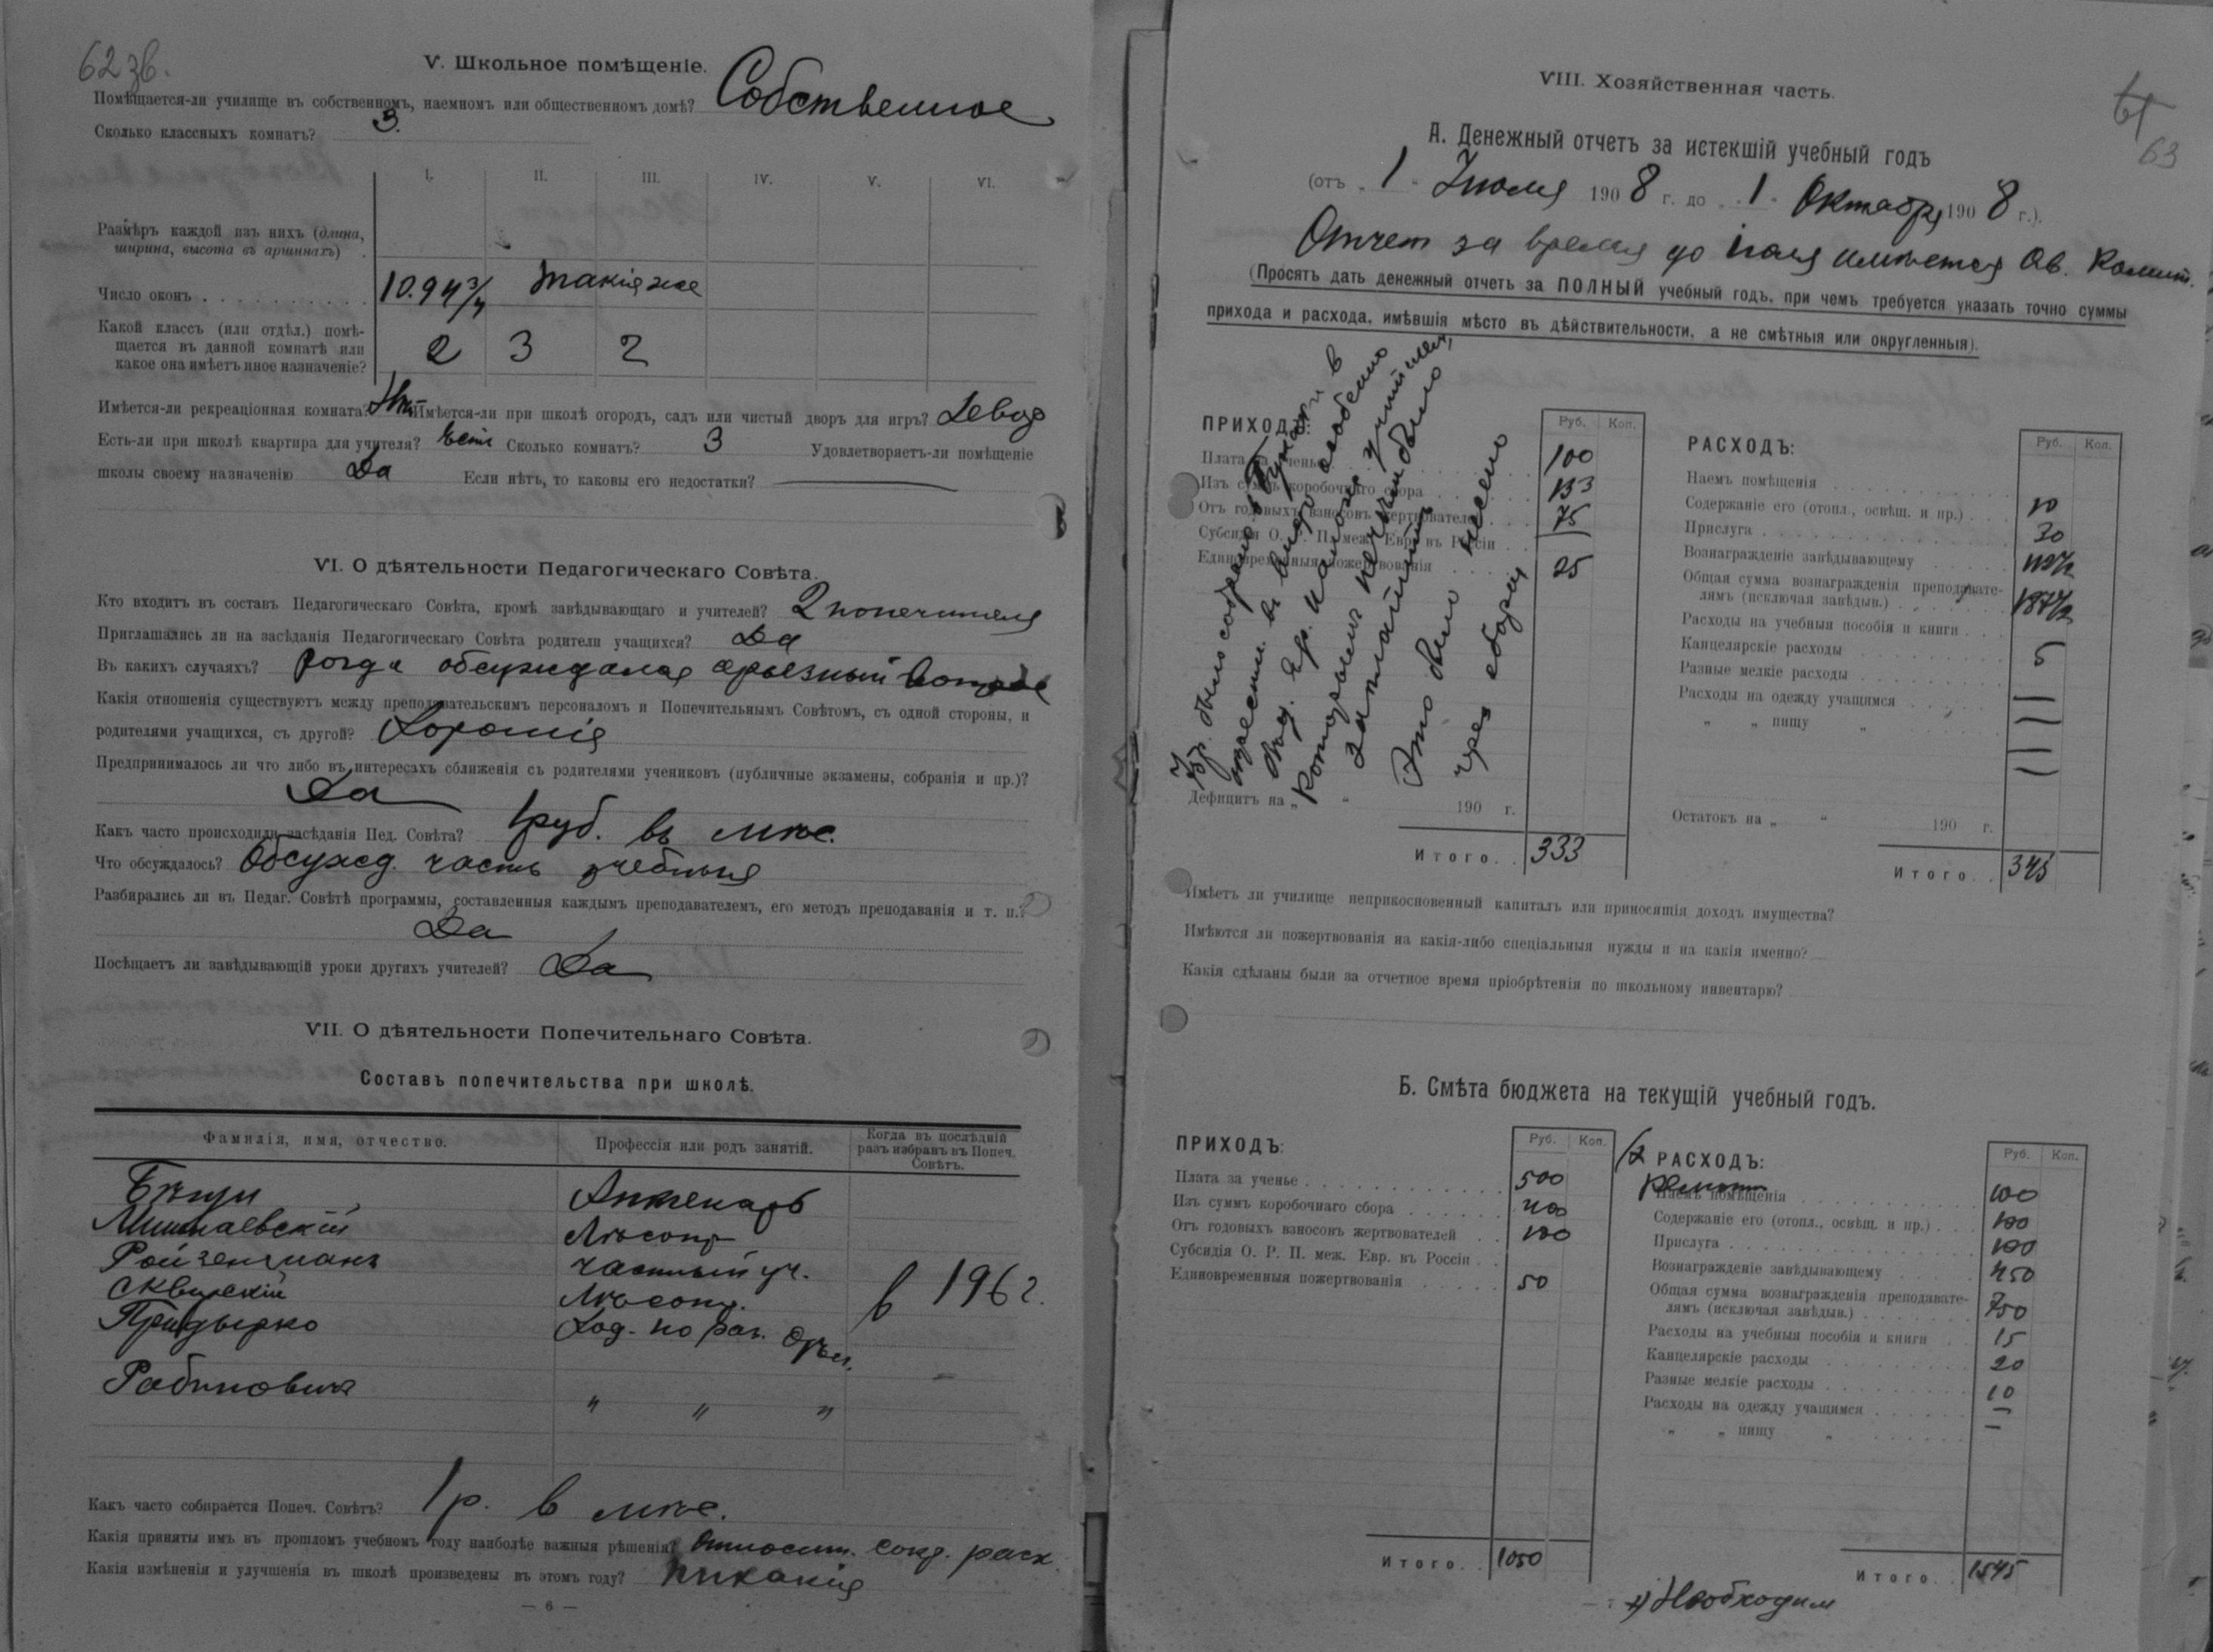 62 зв.
V. Школьное помѣщеніе.
Помѣщается-ли училище въ собственномъ, наемномъ или общественномъ домѣ? Собственное
Сколько классныхъ комнатъ? 3.
I. II. III. IV. V. VI.
Размѣръ каждой изъ нихъ (длина,
ширина, высота въ аршинахъ)
Число оконъ 10.9 4 3/4 такія же
Какой классъ (или отдѣл.) помѣ-
щается въ данной комнатѣ или
какое она имѣетъ иное назначеніе? 2 3 2
Имѣется-ли рекреаціонная комната? Имѣется-ли при школѣ огородъ, садъ или чистый дворъ для игръ?
Есть-ли при школѣ квартира для учителя? Есть Сколько комнатъ? 3 Удовлетворяетъ-ли помѣщеніе
школы своему назначенію Да Если нѣтъ, то каковы его недостатки? —
VI. О дѣятельности Педагогическаго Совѣта.
Кто входитъ въ составъ Педагогическаго Совѣта, кромѣ завѣдывающаго и учителей? 2 попечителя
Приглашались ли на засѣданія Педагогическаго Совѣта родители учащихся? Да
Въ какихъ случаяхъ? обсуждался
Какія отношенія существуютъ между преподавательскимъ персоналомъ и Попечительнымъ Совѣтомъ, съ одной стороны, и
родителями учащихся, съ другой? Хорошія
Предпринималось ли что либо въ интересахъ сближенія съ родителями учениковъ (публичные экзамены, собранія и пр.)?
Да
Какъ часто происходили засѣданія Пед. Совѣта? въ мѣс.
Что обсуждалось? Обсужд. часть учебная
Разбирались ли въ Педаг. Совѣтѣ программы, составленныя каждымъ преподавателемъ, его методъ преподаванія и т. п.?
Да
Посѣщаетъ ли завѣдывающій уроки другихъ учителей? Да
VII. О дѣятельности Попечительнаго Совѣта.
Составъ попечительства при школѣ.
Фамилія, имя, отчество. Профессія или родъ занятій. Когда въ послѣдній
разъ избранъ въ Попеч.
Совѣтъ.
Аптекарь
Лѣсопр
Ройзенманъ частный уч.
Сквирскій Лѣсопр. в 1962.
Придырко
Рабиновичъ " " "
Какъ часто собирается Попеч. Совѣтъ? 1 р. в мѣс.
Какія приняты имъ въ прошломъ учебномъ году наиболѣе важныя рѣшенія? Относит.
Какія измѣненія и улучшенія въ школѣ произведены въ этомъ году? никакія
— 6 —
VIII. Хозяйственная часть.
63
А. Денежный отчетъ за истекшій учебный годъ
(отъ „1“ Іюля 1908 г. до „1“ Октября 1908 г.).
Отчет за время до іюля имѣется Ов. Комит.
(Просятъ дать денежный отчетъ за ПОЛНЫЙ учебный годъ, при чемъ требуется указать точно суммы
прихода и расхода, имѣвшія мѣсто въ дѣйствительности, а не смѣтныя или округленныя).
ПРИХОДЪ: Руб. Коп.
Плата за ученье 100
Изъ суммъ коробочнаго сбора 133
Отъ годовыхъ взносовъ жертвователей 75
Субсидія О. Р. П. меж. Евр. въ Россіи —
Единовременныя пожертвованія 25
Это было
чрез сборы
Дефицитъ на „ “ 190 г.
Итого 333
РАСХОДЪ: Руб. Коп.
Наемъ помѣщенія
Содержаніе его (отопл., освѣщ. и пр.) 10
Прислуга 30
Вознагражденіе завѣдывающему 112 1/2
Общая сумма вознагражденія преподавате-
лямъ (исключая завѣдыв.) 187 1/2
Расходы на учебныя пособія и книги
Канцелярскіе расходы 5
Разные мелкіе расходы —
Расходы на одежду учащимся —
„ „ пищу „ —
Остатокъ на „ “ 190 г.
Итого 345
Имѣетъ ли училище неприкосновенный капиталъ или приносящія доходъ имущества?
Имѣются ли пожертвованія на какія-либо спеціальныя нужды и на какія именно?
Какія сдѣланы были за отчетное время пріобрѣтенія по школьному инвентарю?
Б. Смѣта бюджета на текущій учебный годъ.
ПРИХОДЪ: Руб. Коп.
Плата за ученье 500
Изъ суммъ коробочнаго сбора 400
Отъ годовыхъ взносовъ жертвователей 100
Субсидія О. Р. П. меж. Евр. въ Россіи
Единовременныя пожертвованія 50
Итого 1050
РАСХОДЪ: Руб. Коп.
Ремонт Наемъ помѣщенія 100
Содержаніе его (отопл., освѣщ. и пр.) 100
Прислуга 100
Вознагражденіе завѣдывающему 450
Общая сумма вознагражденія преподавате-
лямъ (исключая завѣдыв.) 750
Расходы на учебныя пособія и книги 15
Канцелярскіе расходы 20
Разные мелкіе расходы 10
Расходы на одежду учащимся —
„ „ пищу „ —
Итого 1545
Необходим